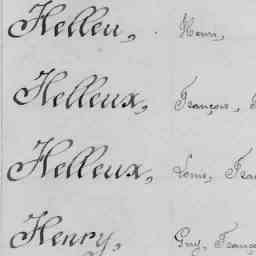 Helleu, Henri,
Helleux, François,
Helleux, Louis, Fran
Henry, Guy, Franço